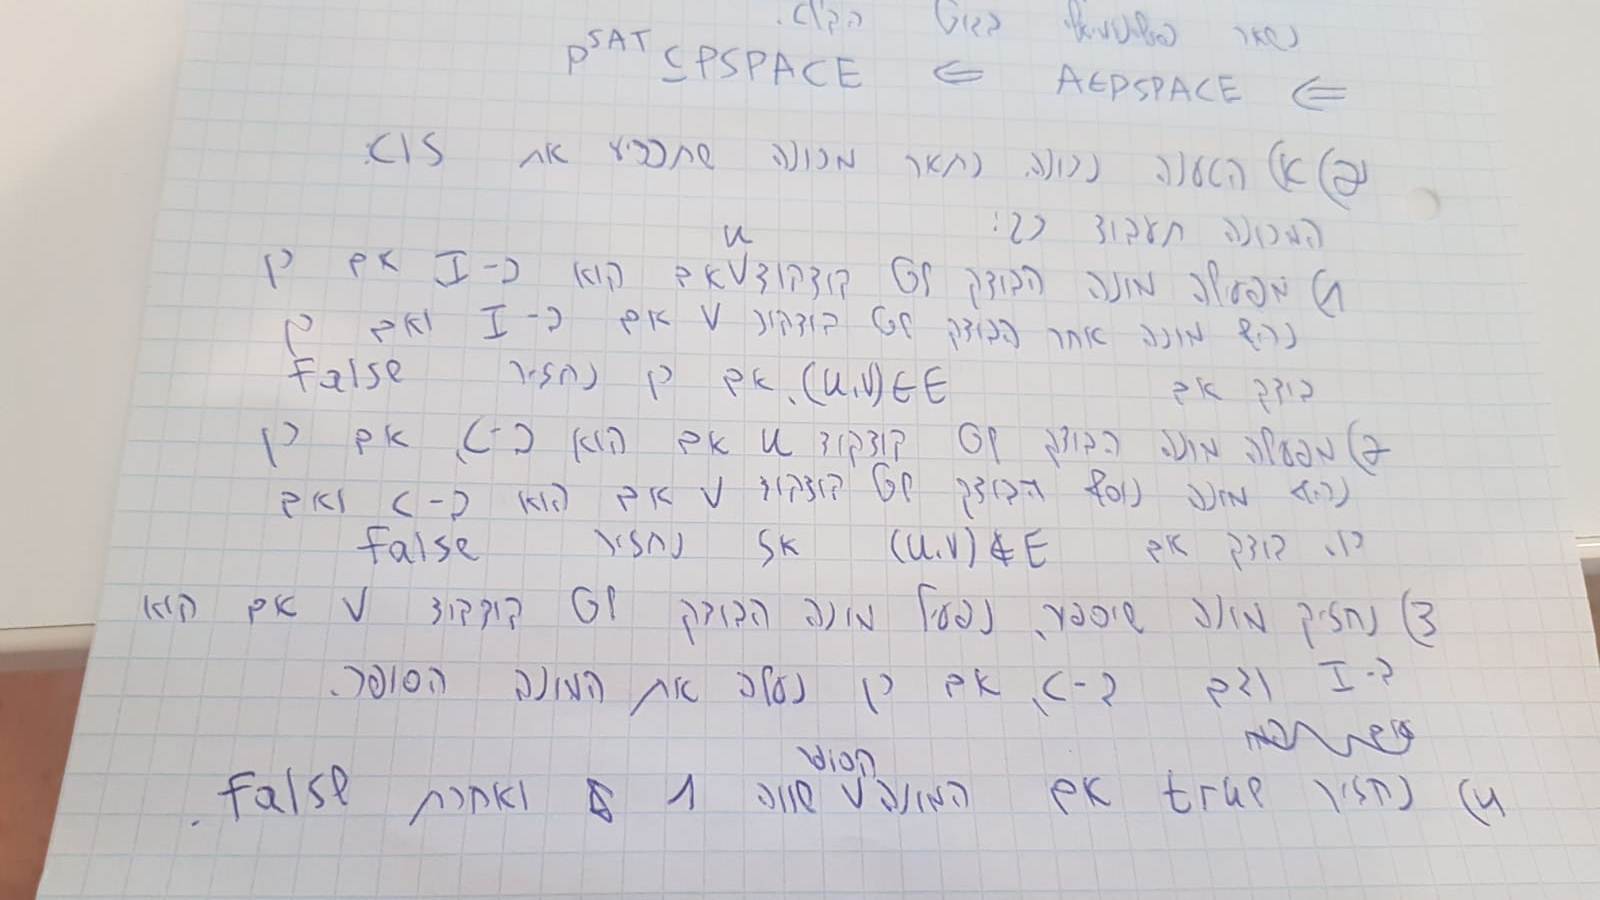 נשאר פולינומיאלי בגודל הקלט.
⇐ A∈PSPACE ⇐ P^SAT ⊆PSPACE
2) א) הטענה נכונה. נתאר מכונה שתכריע את CIS.
המכונה תעבוד כך:
1) מפעילה מונה הבודק לכל קודקוד u אם הוא ב-I אם כן
נריץ מונה אחר הבודק לכל קודקוד v אם ב-I ואם כן
בודק אם (u,v)∈E. אם כן נחזיר false
2) מפעילה מונה הבודק לכל קודקוד u אם הוא ב-C, אם כן
נריץ מונה נוסף הבודק לכל קודקוד v אם הוא ב-C ואם
כן, בודק אם (u,v)∉E אז נחזיר false
3) נחזיק מונה שיספור, נפעיל מונה הבודק לכל קודקוד v אם הוא
ב-I וגם ב-C, אם כן נעלה את המונה הסופר.
4) נחזיר true אם המונה הסופר שווה 1 ואחרת false.